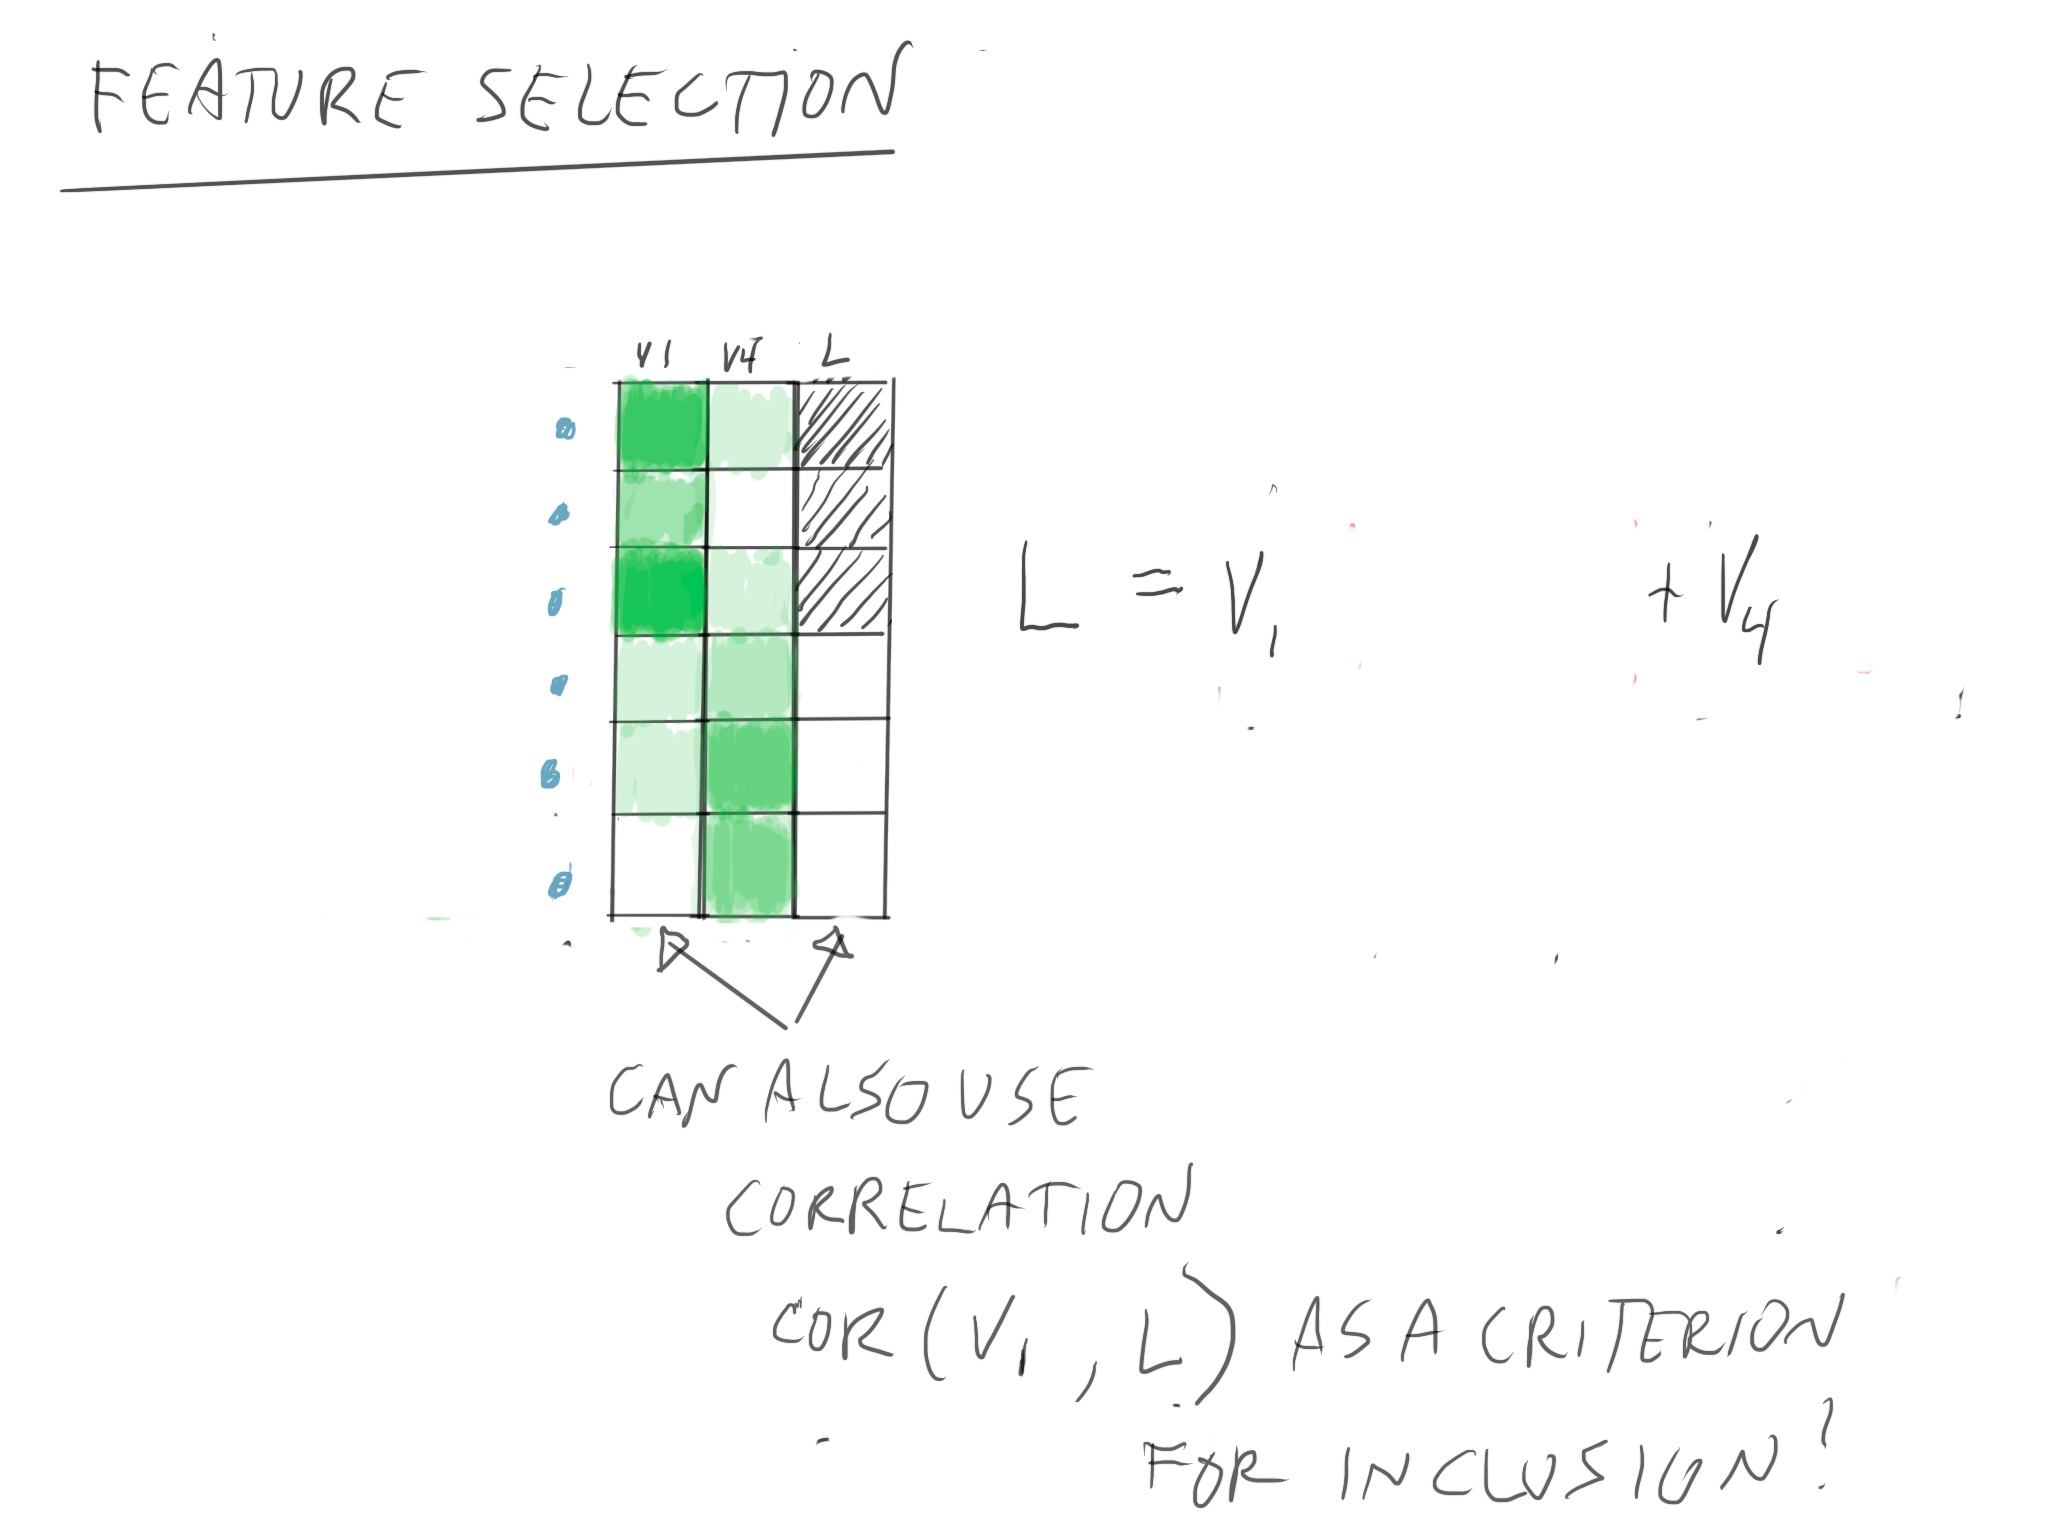 FEATURE SELECTION
V1 V4 L
L = V1 + V4
CAN ALSO USE
CORRELATION
COR(V1, L) AS A CRITERION
FOR INCLUSION?